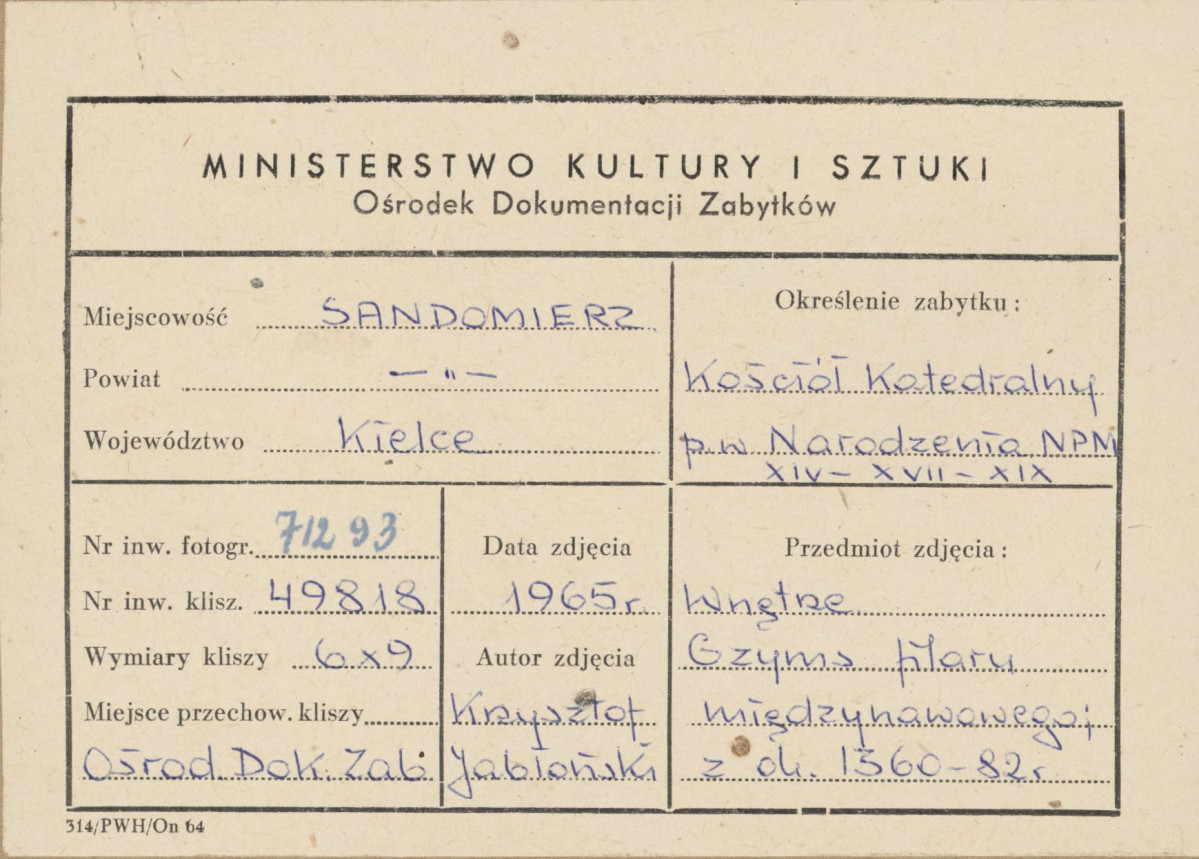 MINISTERSTWO KULTURY I SZTUKI
Ośrodek Dokumentacji Zabytków
Miejscowość SANDOMIERZ
Powiat —„—
Województwo Kielce
Określenie zabytku:
Kościół Katedralny
p.w Narodzenia NPM
XIV – XVII – XIX
Nr inw. fotogr. 71293
Nr inw. klisz. 49818
Wymiary kliszy 6x9
Miejsce przechow. kliszy
Ośrod. Dok. Zab.
Data zdjęcia
1965r.
Autor zdjęcia
Krzysztof
Jabłoński
Przedmiot zdjęcia:
Wnętrze
Gzyms filaru
międzynawowego;
z ok. 1360–82r
314/PWH/On 64